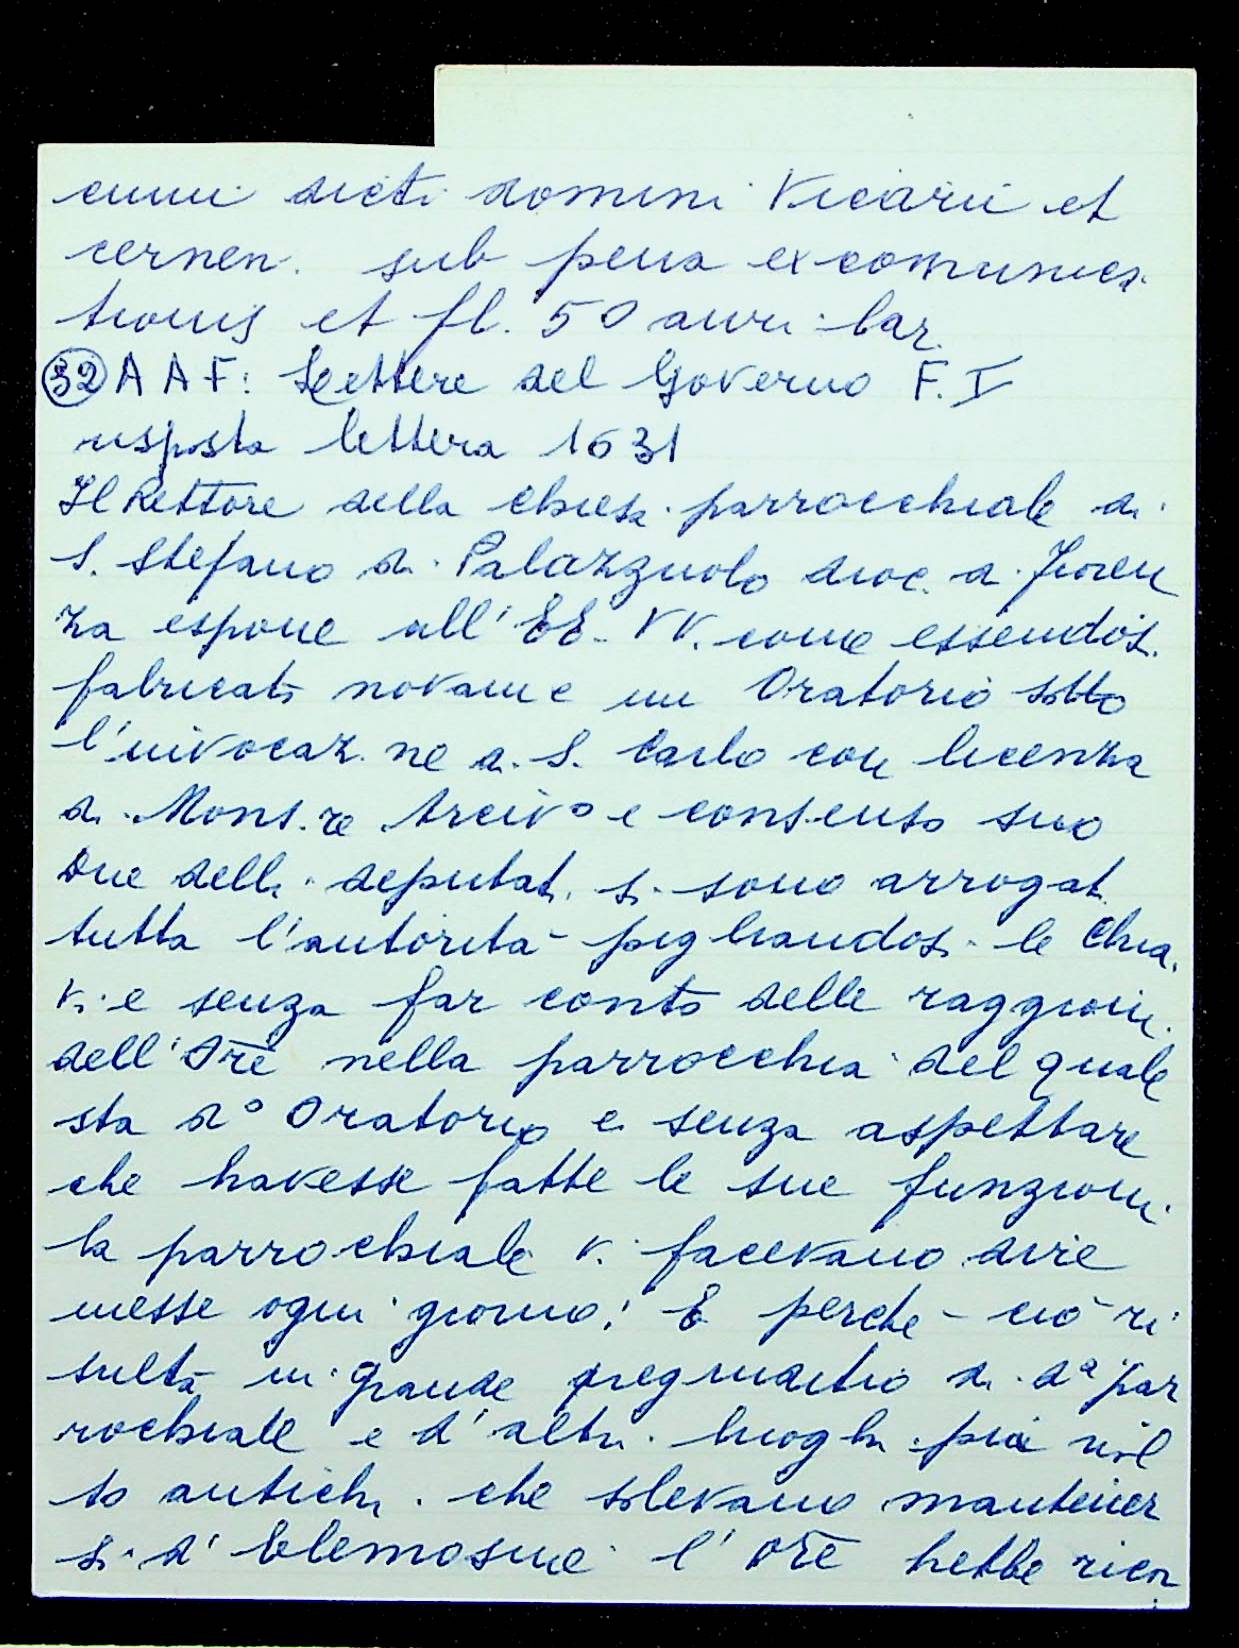 cumi dicti domini Vicarii et
cernen. sub pena excomunica
tionis et fl. 50 auri lar.
32 A A F: Lettere del Governo F. I
risposta lettera 1631
Il Rettore della chiesa parrocchiale di
S. Stefano di Palazzuolo dioc. di Fioren
za espone all' EE. VV. come essendosi
fabricato novame un Oratorio sotto
l'invocaz.ne di S. Carlo con licenza
di Mons.re Arciv° e consenso suo
Due delli deputati si sono arrogati
tutta l'autorità pigliandosi le Chia
vi e senza far conto delle raggioni
dell' Ore nella parrocchia del quale
sta d° Oratorio e senza aspettare
che havesse fatte le sue funzioni
la parrochiale vi facevano dire
messe ogni giorno. E perche ciò ri
sulta in grande pregiuditio di dª par
rochiale e d' altri luoghi pii mol
to antichi che solevano mantener
si d' Elemosine l' ore hebbe ricor